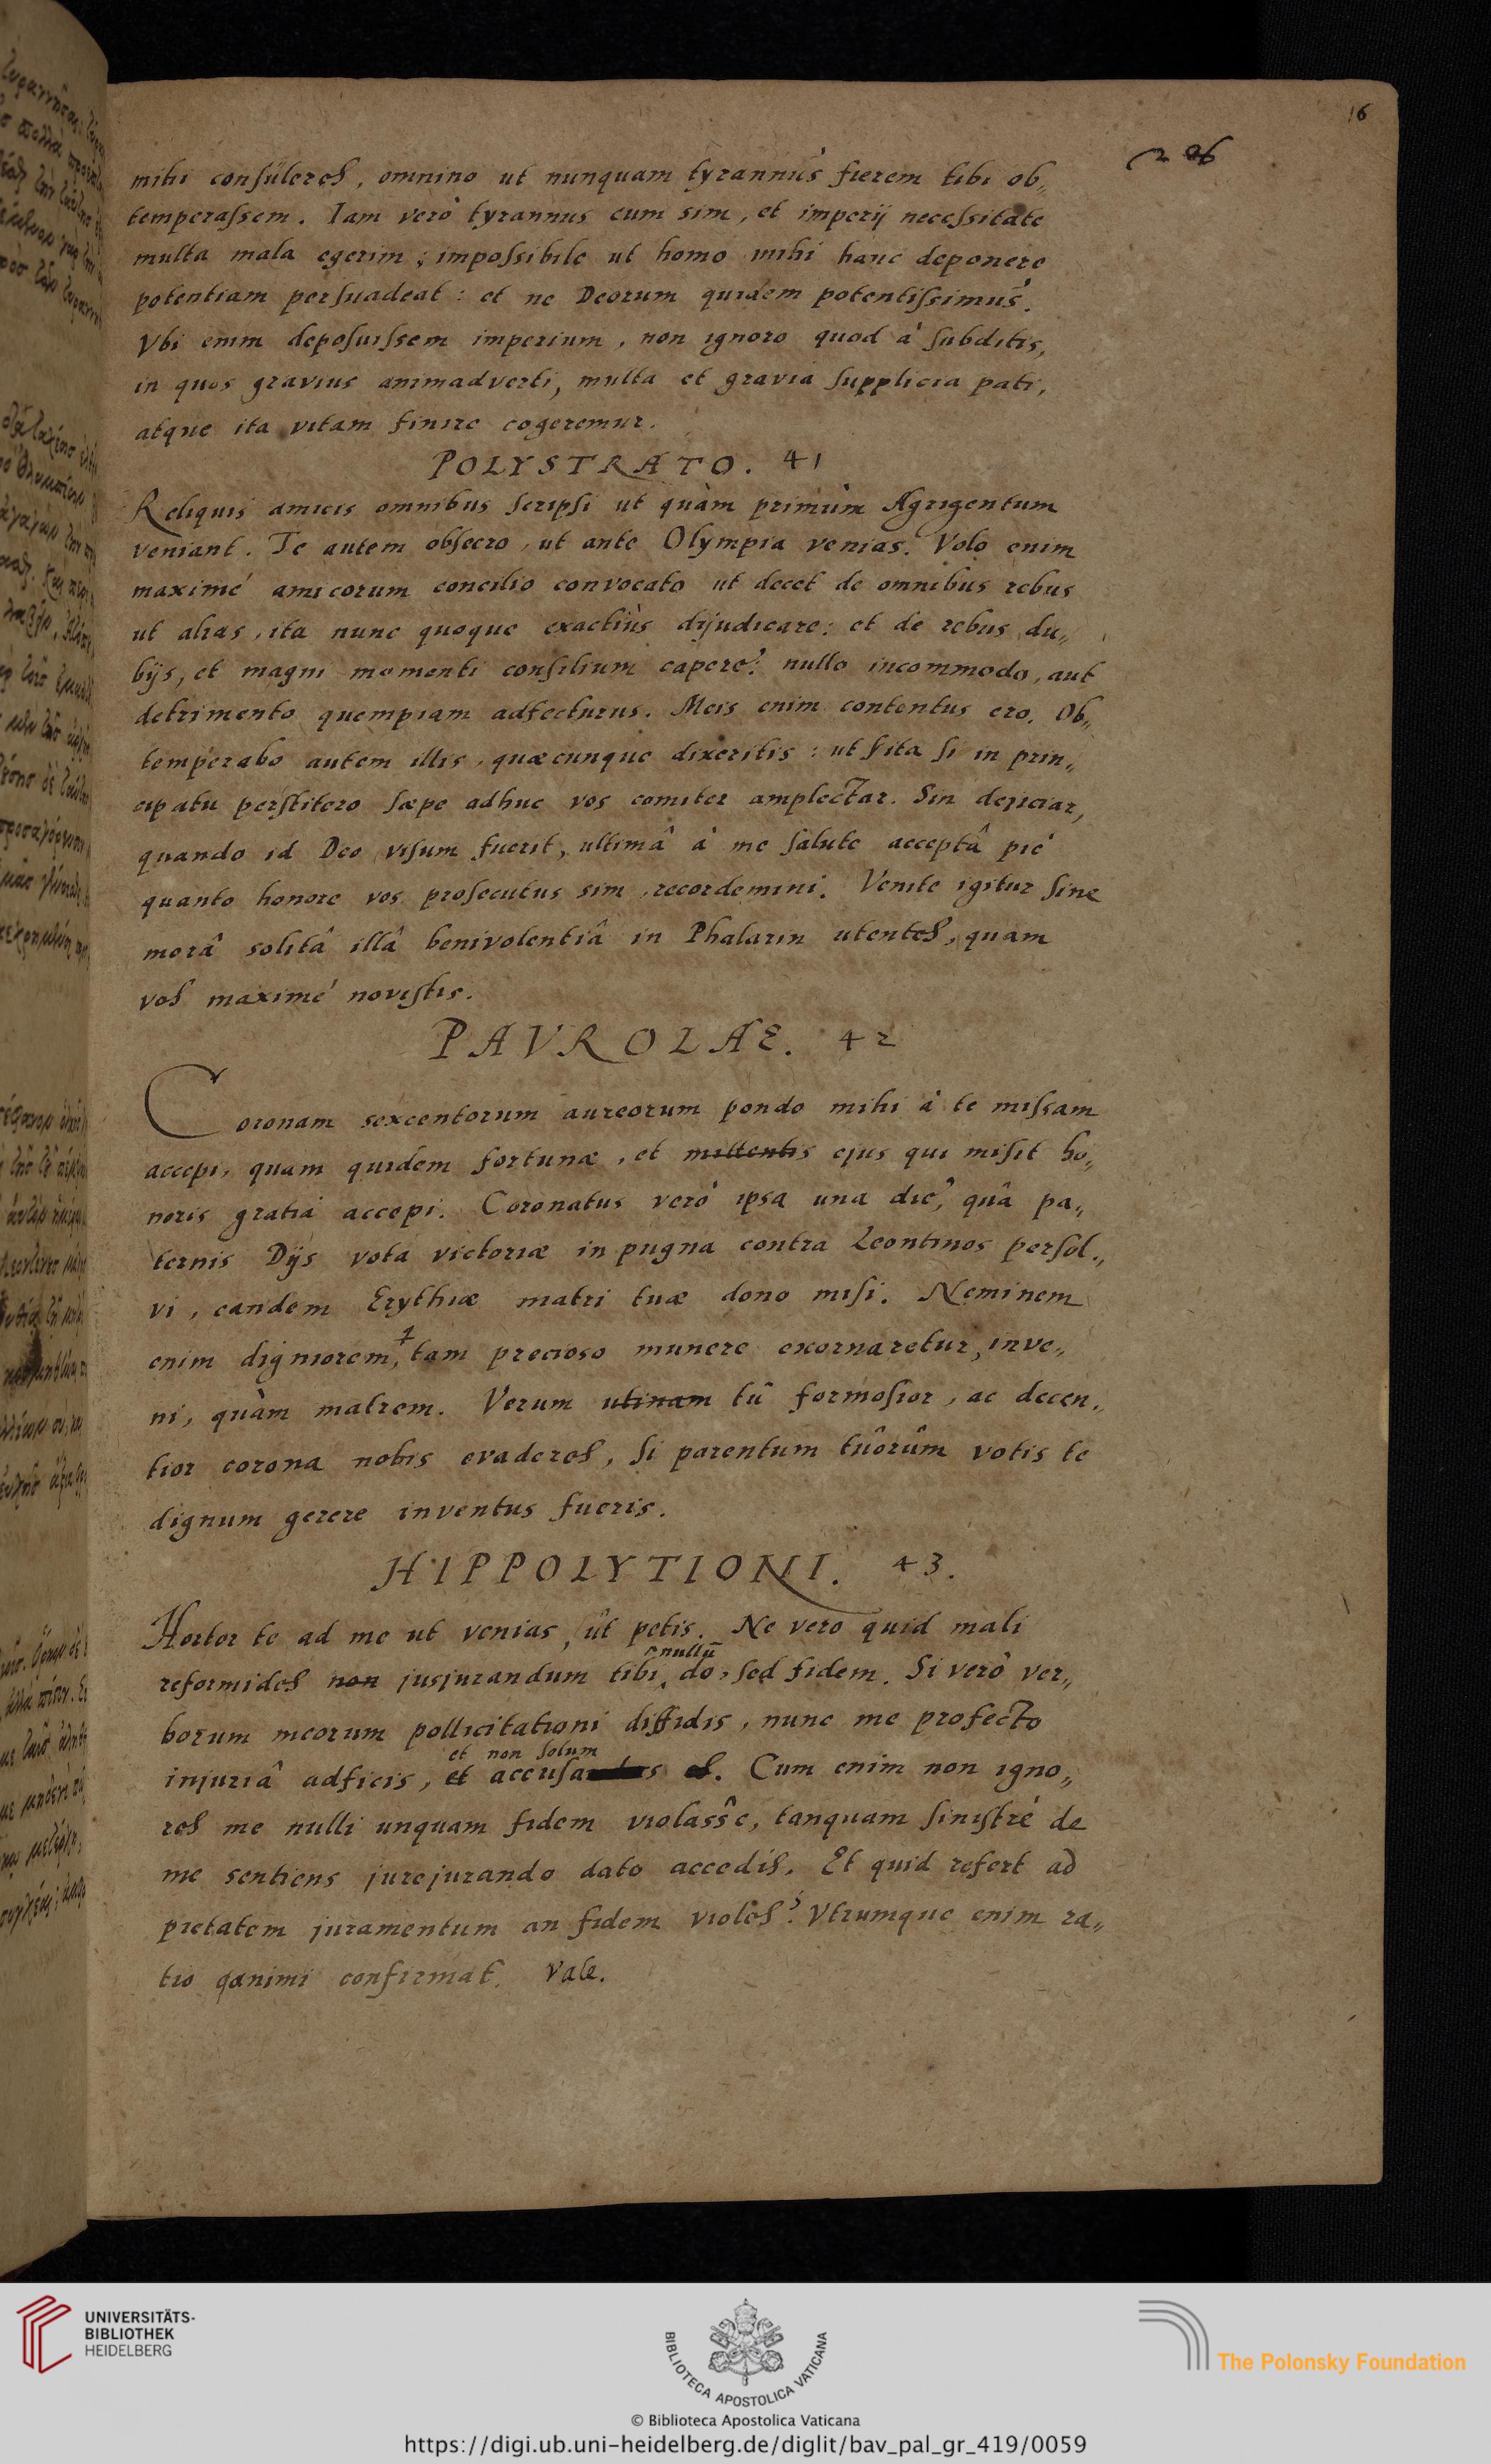 16
206
mihi consuleres, omnino ut nunquam tyrannus fierem tibi ob„
temperassem. Iam verò tyrannus cum sim, et imperij necessitate
multa mala egerim; impossibile ut homo mihi hanc deponere
potentiam persuadeat: et ne Deorum quidem potentissimus.
Vbi enim deposuissem imperium, non ignoro quod à subditis,
in quos gravius animadverti, multa et gravia supplicia pati,
atque ita vitam finire cogeremur.
POLYSTRATO. 41
Reliquis amicis omnibus scripsi ut quàm primùm Agrigentum
veniant. Te autem obsecro, ut ante Olympia venias. Volo enim
maximé amicorum concilio convocato ut decet de omnibus rebus
ut alias, ita nunc quoque exactiùs dijudicare: et de rebus du„
bijs, et magni momenti consilium capere: nullo incommodo, aut
detrimento quempiam adfecturus. Meis enim contentus ero. Ob„
temperabo autem illis, quæcunque dixeritis: ut si ita si in prin„
cipatu perstitero sæpe adhuc vos comiter amplectar. Sin dejiciar,
quando id Deo visum fuerit, ultimâ à me salute acceptâ pié
quanto honore vos prosecutus sim, recordemini. Venite igitur sine
morâ solitâ illâ benivolentiâ in Phalarin utentes, quam
vos maximé novistis.
PAVROLAE. 42
Coronam sexcentorum aureorum pondo mihi à te missam
accepi, quam quidem fortunæ, et mittentis ejus qui misit ho„
noris gratiâ accepi. Coronatus verò ipsa una die, quâ pa„
ternis Dijs vota victoriæ in pugna contra Leontinos persol„
vi, eandem Erythiæ matri tuæ dono misi. Neminem
enim digniorem, tam precioso munere exornaretur, inve„
ni, quàm matrem. Verum utinam tû formosior, ac decen„
tior corona nobis evaderes, si parentum tûorûm votis te
dignum gerere inventus fueris.
HIPPOLYTIONI. 43.
Hortor te ad me ut venias, ût petis. Ne vero quid mali
nullū
reformides non jusjurandum tibi do, sed fidem. Si verò ver„
borum meorum pollicitationi diffidis, nunc me profecto
et non solum
injuriâ adficis, et accusa s es. Cum enim non igno„
res me nulli unquam fidem violasse, tanquam sinistré de
me sentiens jurejurando dato accedis. Et quid refert ad
pietatem juramentum an fidem violes? Vtrumque enim ra„
tio animi confirmat. Vale.
UNIVERSITÄTS-
BIBLIOTHEK
HEIDELBERG
BIBLIOTECA APOSTOLICA VATICANA
© Biblioteca Apostolica Vaticana
The Polonsky Foundation
https://digi.ub.uni-heidelberg.de/diglit/bav_pal_gr_419/0059